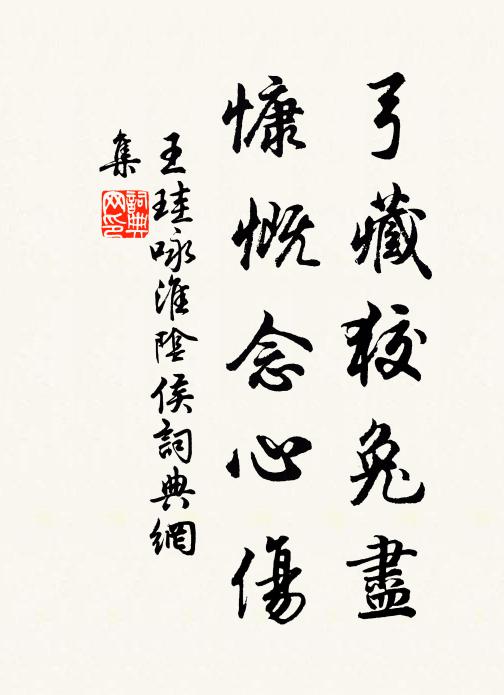 弓藏狡兔盡
慷慨念心傷
王珪咏淮陰侯詞典網
集
詞典
网印